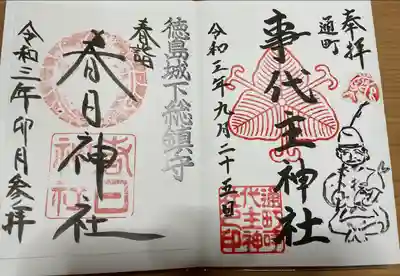 奉拝
通町
事代主神社
令和三年九月二十五日
徳島城下総鎮守
春詣
春日神社
春日神社
令和三年卯月参拝